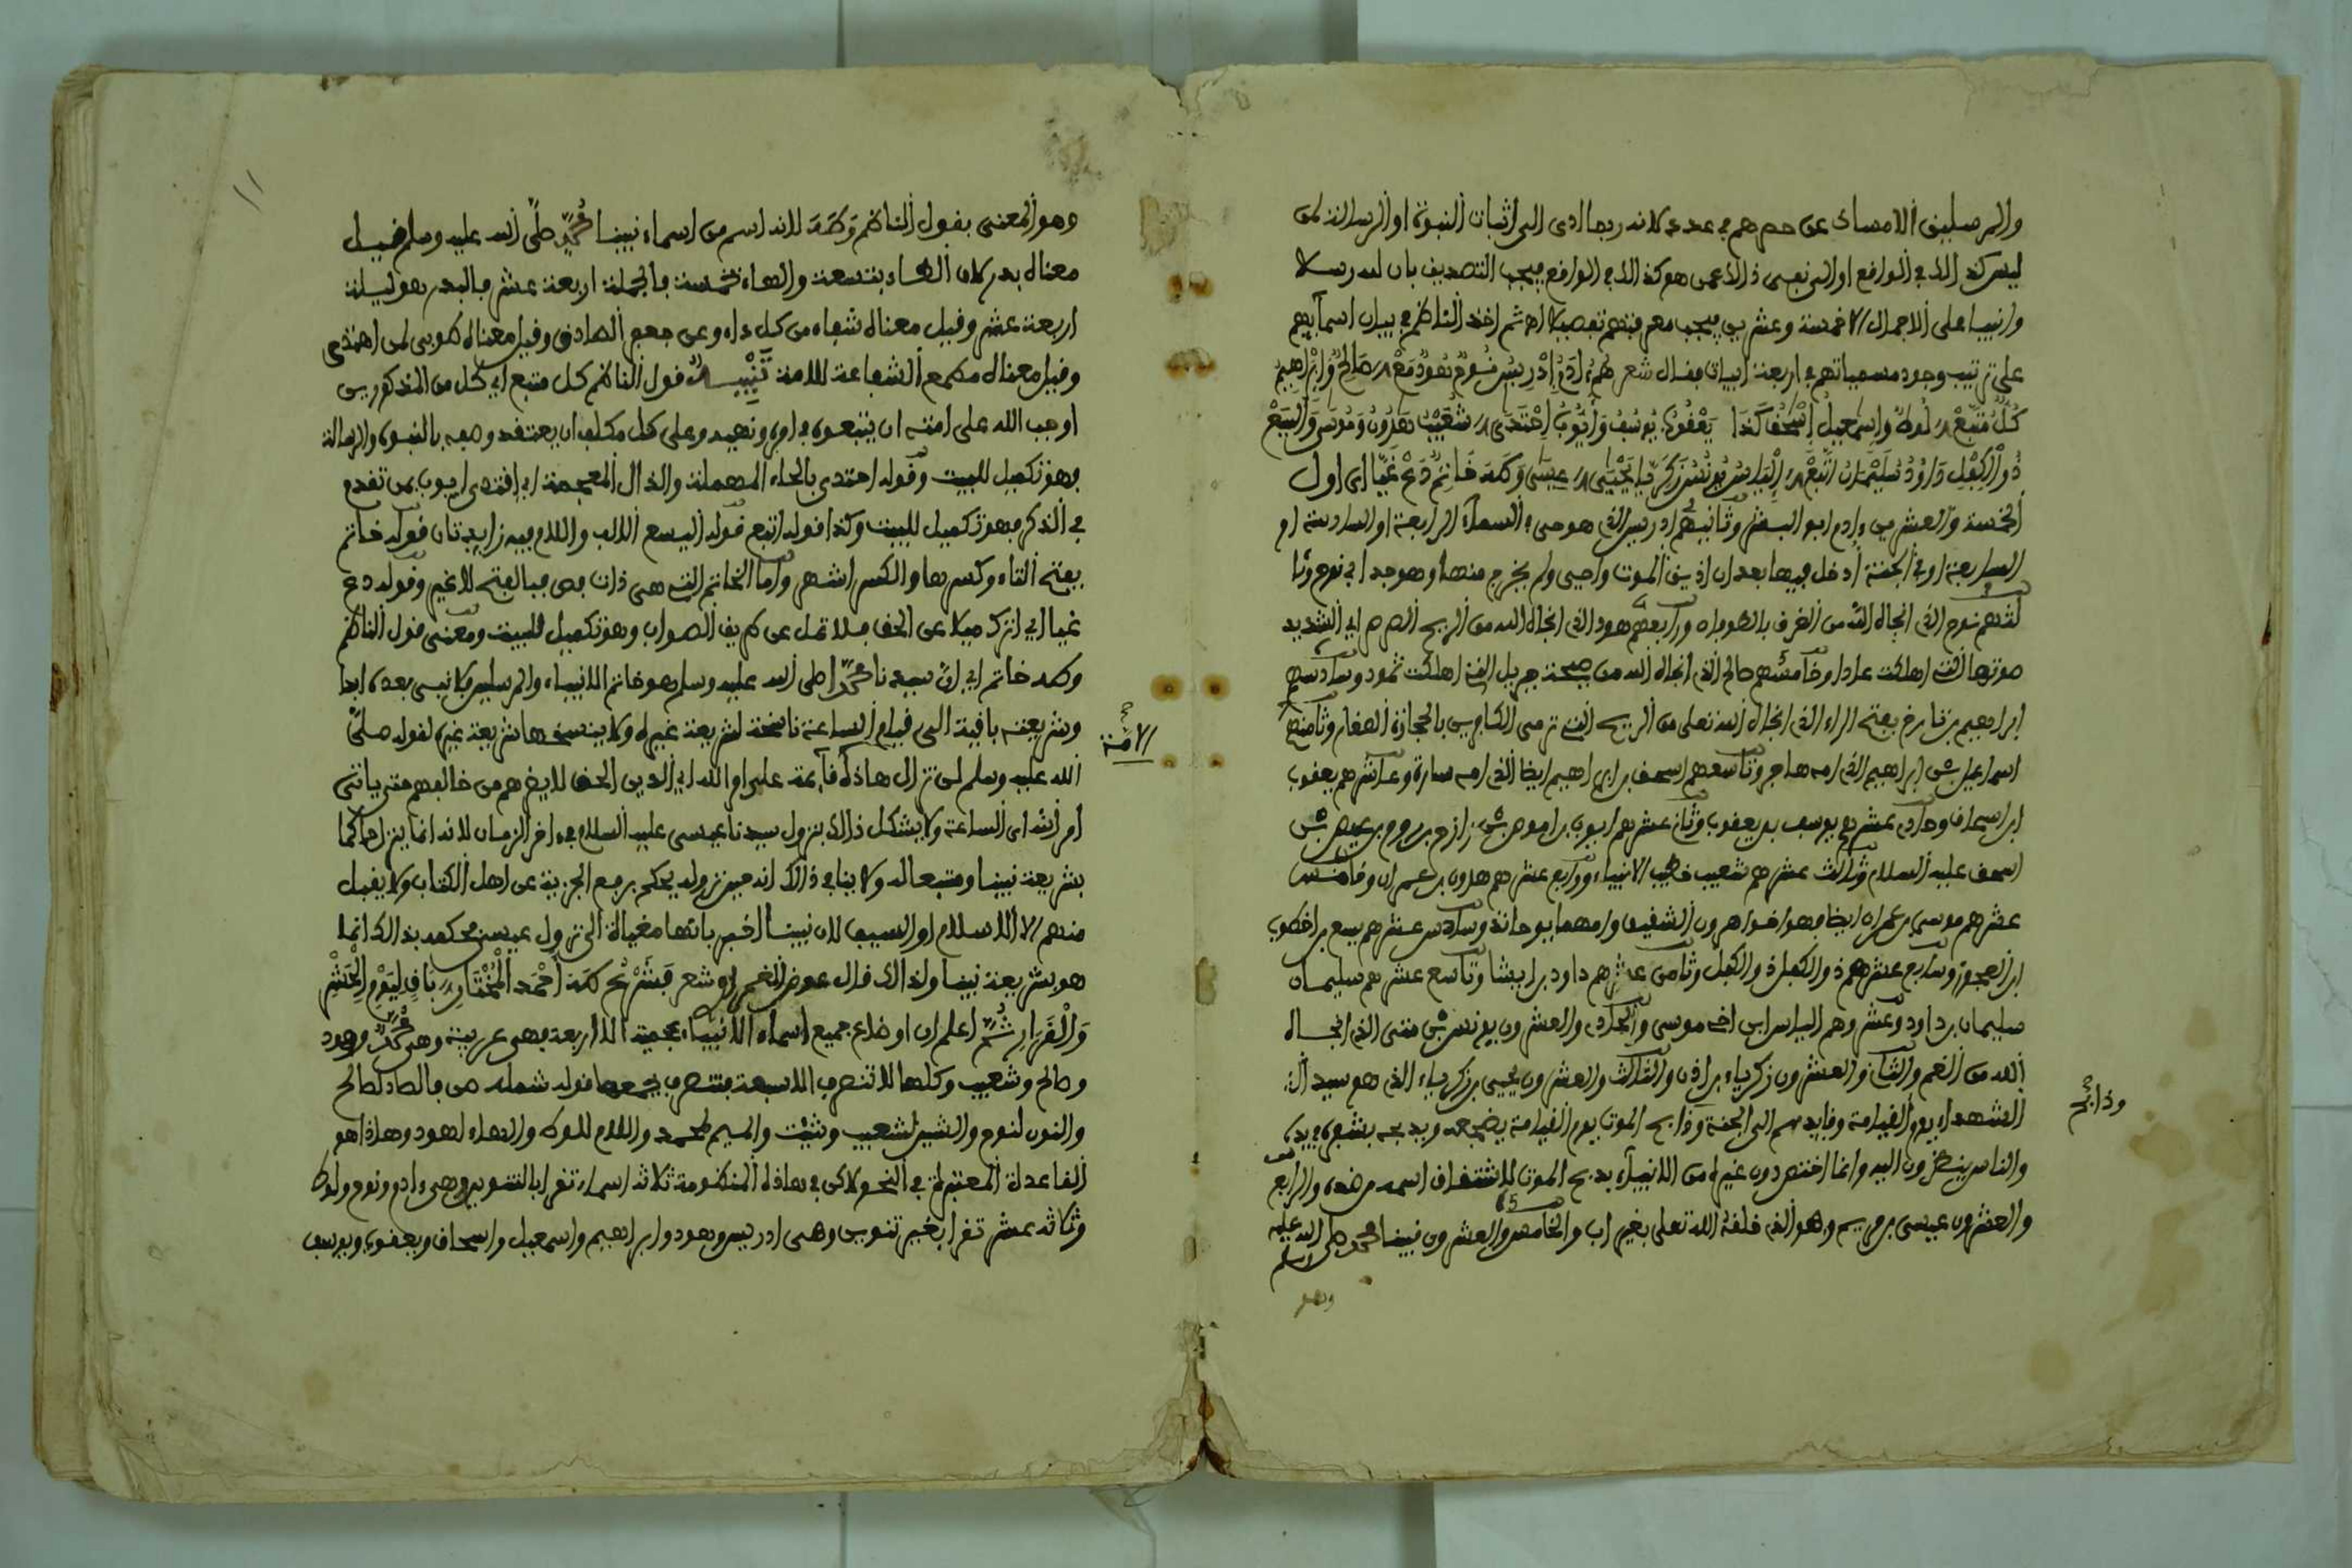 والمرسلين الامساك عن حصرهم في عدد لانه ربما ادى الى اثبات النبوة او الرسالة لمن
ليس كذلك في الواقع او الى نفي ذالك عمن هو كذالك في الواقع فيجب التصديق بان لله رسلا
وانبيا على الاجمال الا خمسة وعشرين فيجب معرفتهم تفصيلا اه ثم اخذ الناظم في بيان اسمآيهم
على ترتيب وجود مسمياتهم في اربعة ابيات فقال شعر هُمُ ءَادَمُ اِدْرِيسُ نُوحٌ هُودٌ مَعْ صَالِحْ وَإِبْرَاهِيمُ
كُلٌّ مُتَّبَعْ لُوطٌ وَإِسْمَعِيلُ إِسْحَقُ كَذَا يَعْقُوبُ يُوسُفُ وَأَيُّوبُ اِحْتَذَى شُعَيْبُ هَرُونُ وَمُوسَى وَالْيَسَعْ
ذُو الْكِفْلِ دَاوُدُ سُلَيْمَانُ اتَّبَعْ اِلْيَاسُ يُونُسُ زَكَرِيَّا يَحْيَى عِيسَى وَطَهَ خَاتِمٌ دَعْ غَيَّا اي اول
الخمسة والعشرين ءادم ابو البشر وثانيهم ادريس الذي هو حي في السمآء الرابعة او السادسة او
السابعة او في الجنة أدخل فيها بعد ان اذيق الموت واحيى ولم يخرج منها وهو جد ابي نوح وثا
لثهم نوح الذي انجاه الله من الغرق بالطوفان ورابعهم هود الذي انجاه الله من الريح الصرصر اي الشديد
صوتها التي اهلكت عادا وخامسهم صالح الذي أنجاه الله من صيحة جبريل التي اهلكت ثمود وسادسهم
ابراهيم بن تارخ بفتح الراء الذي انجاه الله تعلى من الريح التي ترمى الكافرين بالحجارة الصغار وثامنهم
اسماعيل بن ابراهيم الذي امه هاجر وتاسعهم اسحق بن ابراهيم ايضا الذي امه سارة وعاشرهم يعقوب
ابن اسحاق وحادي عشرهم يوسف بن يعقوب وثاني عشرهم ايوب بن اموص بن رازح بن روم بن عيص بن
اسحق عليه السلام وثالث عشرهم شعيب خطيب الانبياء ورابع عشرهم هرون بن عمران وخامس
عشرهم موسى بن عمران ايضا وهو اخو اهرون الشقيق وامهما يوحانذ وسادس عشرهم يسع بن اخطوب
ابن العجوز وسابع عشرهم ذو الكفل وثامن عشرهم داود بن ايشا وتاسع عشرهم سليمان
سليمان بن داود وعشروهم الياس ابن اخ موسى والحادي والعشرون يونس بن متى الذي انجاه
الله من الغم والثاني والعشرون زكرياء بن اذن والثالث والعشرون يحيى بن زكرياء الذي هو سيد
الشهداء يوم القيامة وقايدهم الى الجنة وذابح الموت يوم القيامة يضجعه ويذبحه بشفرة في يده
وذابح
والناس ينظرون اليه وانما اختص دون غيره من الانبيآء بذبح الموت لاشتقاق اسمه من ضده والرابع
والعشرون عيسى بن مريم وهو الذي خلقه الله تعلى بغير اب والخامس والعشرون نبينا محمد صلى الله عليه وسلم
وهو
وهو المعنى بقول الناظم وَطَهَ لانه اسم من اسماء نبينا محمدٍ صلى الله عليه وسلم قيل
معناه بدر لان الطاء بتسعة والهاء خمسة فالجملة اربعة عشر فالبدر هو ليلة
اربعة عشر وقيل معناه شفاء من كل داء وعن جعفر الصادق وقيل معناه طوبى لمن اهتدى
وقيل معناه مطمع الشفاعة للامة تَنْبِيهٌ قول الناظم كل متبع اي كل من المذكورين
اوجب الله على امته ان يتبعوه في امره ونهيه وعلى كل مكلف ان يعتقد وصفه بالنبوة والرسالة
وهو تكميل للبيت وقوله احتذى بالحاء المهملة والذال المعجمة اي اقتدى ايوب بمن تقدم
في الذكر فهو تكميل للبيت وكذا قوله اتبع قوله اليسع الالف واللام فيه زايدتان قوله خاتم
بفتح التاء وكسرها والكسر اشهر واما الخاتم التي هى ذات فص فبالفتح لا غير وقوله دع
غيا اي اترك ميلا عن الحق فلا تمل عن طريق الصواب وهو تكميل للبيت ومعنى قول الناظم
وطه خاتم اي ان سيدنا محمدًا صلى الله عليه وسلم هو خاتم الانبياء والمرسلين لا نبيى بعده ابدا
وشريعته باقية الى قيام الساعة ناسخة لشريعة غيره ولا ينسخها شريعة غيره لقوله صلى
الامة
الله عليه وسلم لن تزال هاذه قآيمة على امر الله اي الدين الحق لا يضرهم من خالفهم حتى ياتى
امر الله اى الساعة ولا يشكل ذالك بنزول سيدنا عيسى عليه السلام في ءاخر الزمان لانه انما ينزل حاكما
بشريعة نبينا ومتبعا له ولا ينافي ذالك انه حين نزوله يحكم برفع الجزية عن اهل الكتاب ولا يقبل
منهم الا الاسلام او السيف لان نبينا اخبر بانها مغياة الى نزول عيسى فحكمه بذالك انما
هو بشريعة نبينا ولذالك قال عوض الغمراوي شعر فَشَرْعُ طَهَ أَحْمَدَ الْمُخْتَارِ بَاقٍ لِيَوْمِ الْحَشْرِ
وَالْقَرَارِ ثُمَّ اعلم ان اوضاع جميع اسماء الانبياء عجمية الا اربعة فهى عربية وهى محمدٌ وهود
وصالح وشعيب وكلها لا تنصرف الا سبعة فتنصرف يجمعها قوله شمله صن فالصاد لصالح
والنون لنوح والشين لشعيب وشيث والميم لمحمد واللام للوط والهاء لهود وهاذا هو
القاعدة المعتبرة في النحو لاكن في هاذه المنظومة ثلاثة اسماء تقرا بالتنوين وهى ءادم ونوح ولوط
وثلاثه عشر تقرا بغير تنوين وهى ادريس وهود وابراهيم واسمعيل واسحاق ويعقوب ويوسف